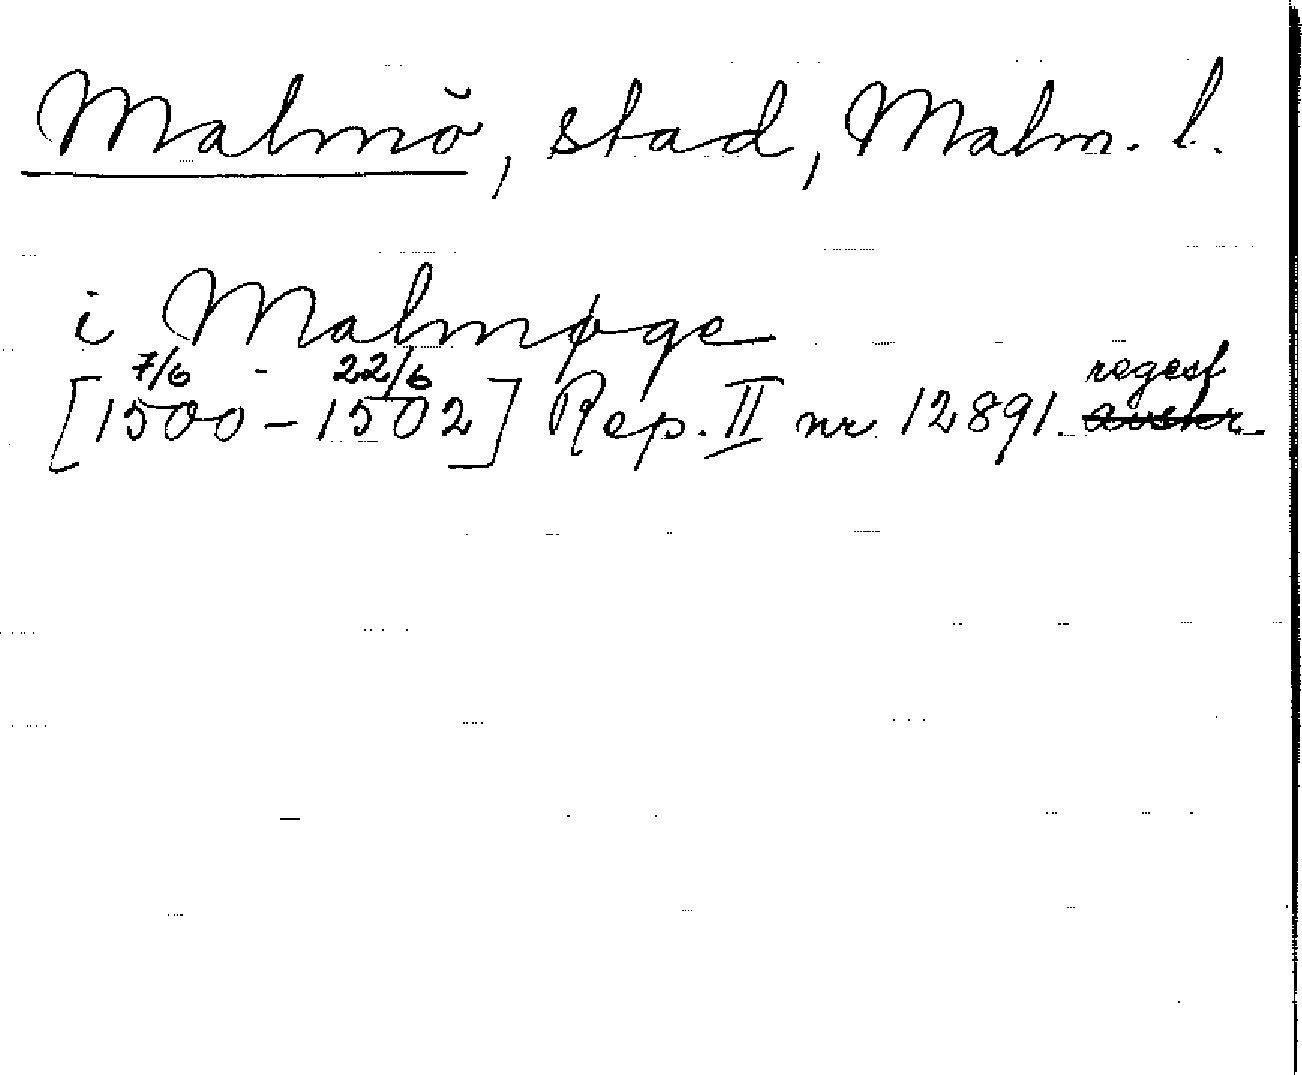 Malmö, stad, Malm. l.
i Malmøge
7/6 - 22/6
[1500 - 1502] Rep. II nr 12891. regest
avskr.